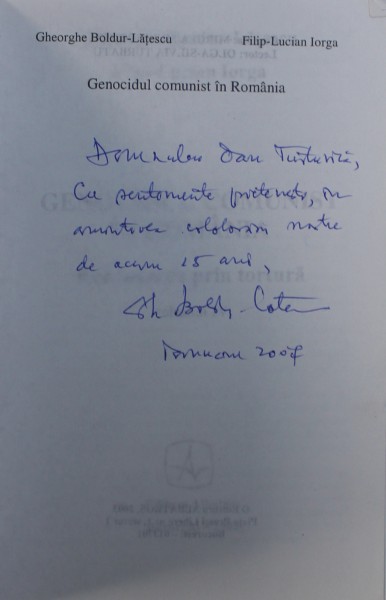 Gheorghe Boldur-Lățescu Filip-Lucian Iorga
Genocidul comunist în România
Domnului Dan Turturică,
Cu sentimente prietenești, în
amintirea colaborării noastre
de acum 15 ani,
Gh Boldur-Lățescu
Ianuarie 2007